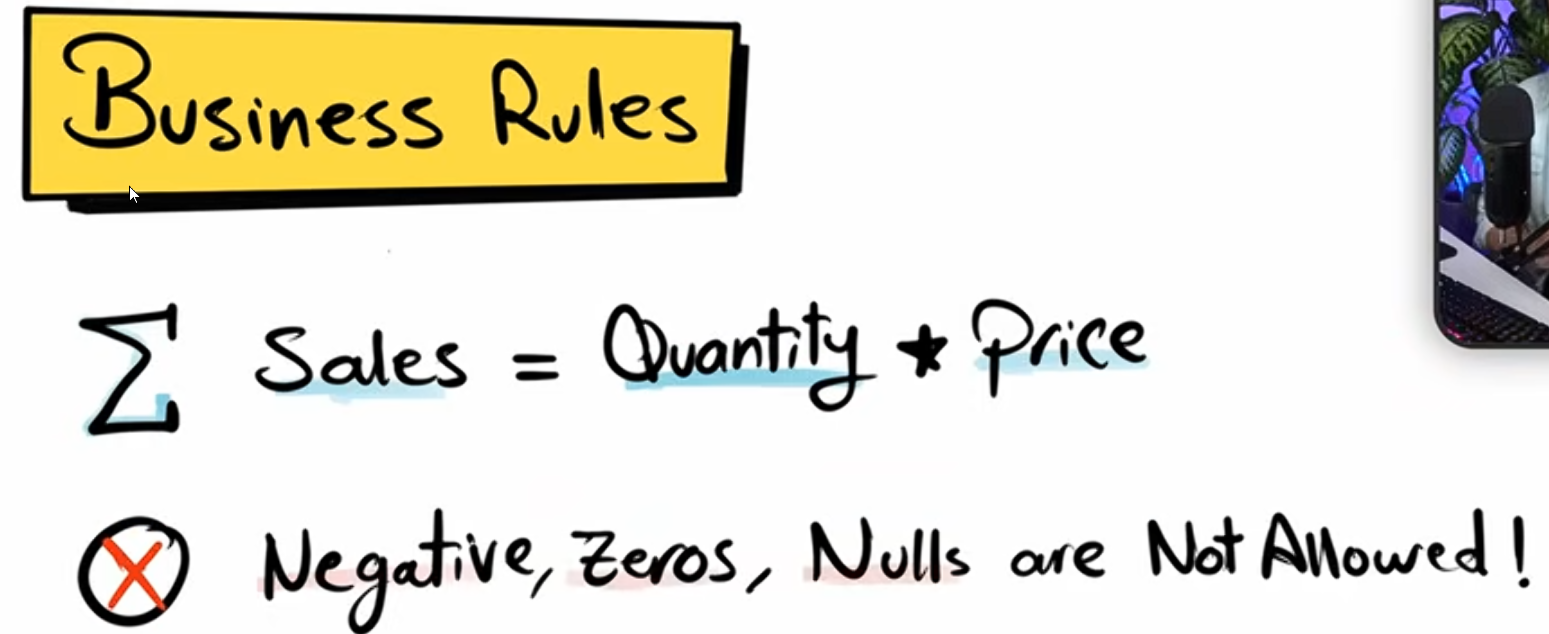 Business Rules
∑ Sales = Quantity * Price
Negative, Zeros, Nulls are Not Allowed!